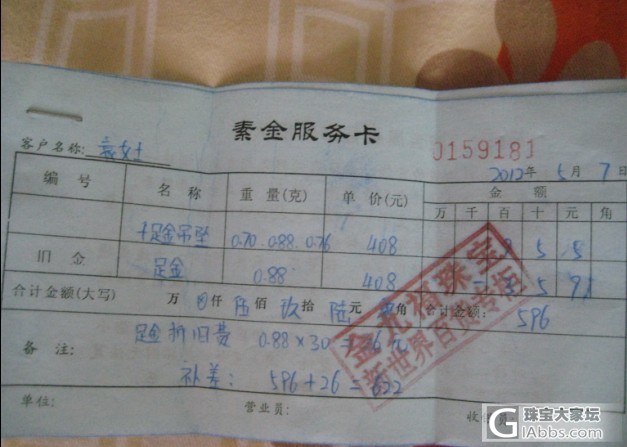 素金服务卡
客户名称: 袁女士 0159181
2012年5月7日
编号 名称 重量(克) 单价(元) 金额
万 千 百 十 元 角
千足金吊坠 0.70 0.88 0.76 408
旧金 足金 0.88 408
合计金额(大写) 万 仟 伍佰 玖拾 陆元 角 合计金额: 596
足金折旧费 0.88×30=26元
备注:
补差: 596+26=622
单位: 营业员:
珠宝
新世界百货专柜
珠宝大家坛
GIAbbs.com